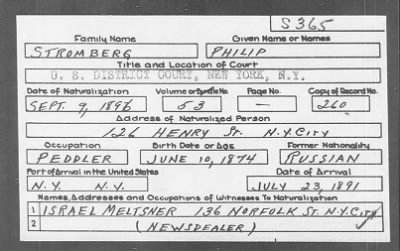 S365
Family Name Given Name or Names
STROMBERG PHILIP
Title and Location of Court
U. S. DISTRICT COURT, NEW YORK, N.Y.
Date of Naturalization Volume or Bundle No. Page No. Copy of Record No.
SEPT. 9, 1896 53 — 260
Address of Naturalized Person
126 HENRY ST. N.Y.CITY
Occupation Birth Date or Age Former Nationality
PEDDLER JUNE 10, 1874 RUSSIAN
Port of Arrival in the United States Date of Arrival
N.Y. N.Y. JULY 23, 1891
Names, Addresses and Occupations of Witnesses To Naturalization
1 ISRAEL MELTSNER 136 NORFOLK ST. N.Y.CITY
2 (NEWSDEALER)